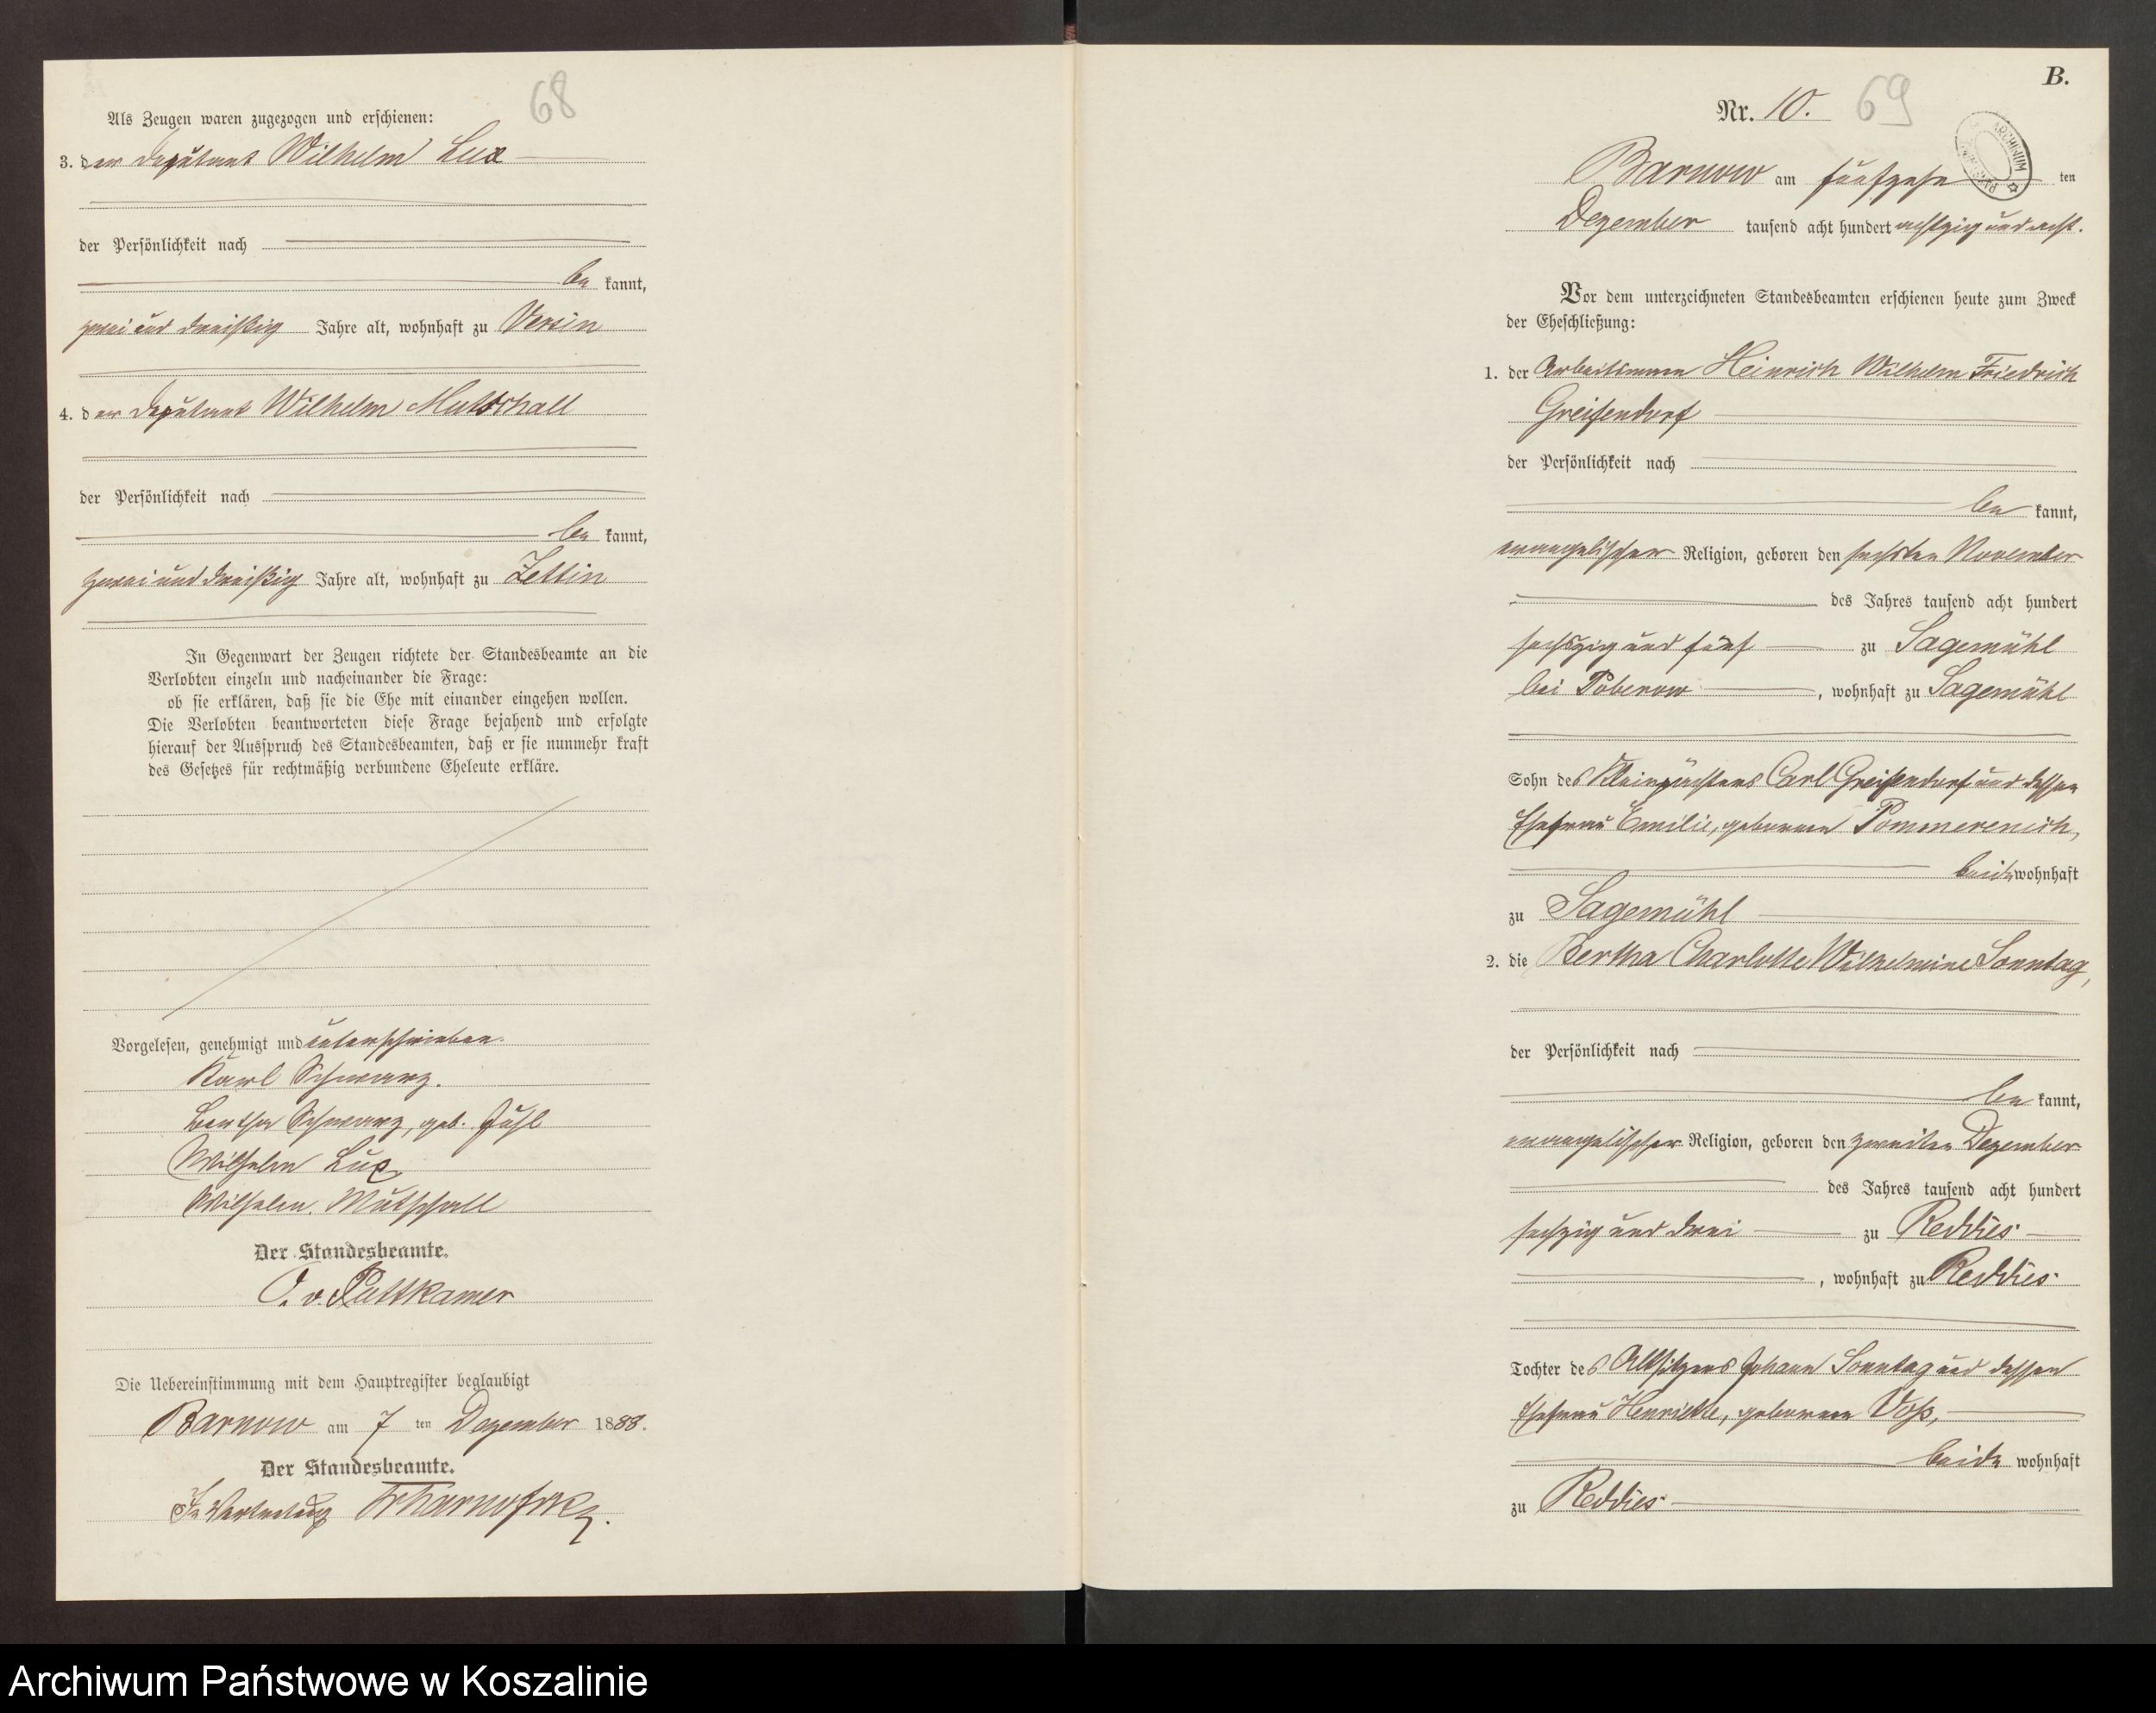 68
Als Zeugen waren zugezogen und erschienen:
3. der Deputant Wilhelm Lux
der Persönlichkeit nach
be kannt,
zwei und dreißig Jahre alt, wohnhaft zu Versin
4. der Deputant Wilhelm Mutschall
der Persönlichkeit nach
be kannt,
zwei und dreißig Jahre alt, wohnhaft zu Zettin
In Gegenwart der Zeugen richtete der Standesbeamte an die
Verlobten einzeln und nacheinander die Frage:
ob sie erklären, daß sie die Ehe mit einander eingehen wollen.
Die Verlobten beantworteten diese Frage bejahend und erfolgte
hierauf der Ausspruch des Standesbeamten, daß er sie nunmehr kraft
des Gesetzes für rechtmäßig verbundene Eheleute erkläre.
Vorgelesen, genehmigt und unterschrieben.
Karl Schwarz.
Bertha Schwarz, geb. Juhl
Wilhelm Lux
Wilhelm Mutschall
Der Standesbeamte.
O. v. Puttkamer
Die Uebereinstimmung mit dem Hauptregister beglaubigt
Barnow am 7 ten Dezember 1888.
Der Standesbeamte.
In Vertretung
B.
Nr. 10. 69
ARCHIWUM
Barnow am fünfzehn ten
Dezember tausend acht hundert achtzig und acht.
Vor dem unterzeichneten Standesbeamten erschienen heute zum Zweck
der Eheschließung:
1. der Arbeitsmann Heinrich Wilhelm Friedrich
Greifendorf
der Persönlichkeit nach
be kannt,
evangelischer Religion, geboren den sechsten November
des Jahres tausend acht hundert
sechszig und fünf zu Sagemühl
bei Poberow, wohnhaft zu Sagemühl
Sohn des Kleinpächters Carl Greifendorf und dessen
Ehefrau Emilie, geborenen Pommerenich,
beide wohnhaft
zu Sagemühl
2. die Bertha Charlotte Wilhelmine Sonntag,
der Persönlichkeit nach
be kannt,
evangelischer Religion, geboren den zweiten Dezember
des Jahres tausend acht hundert
sechzig und drei zu Reddies
, wohnhaft zu Reddies
Tochter des Altsitzers Johann Sonntag und dessen
Ehefrau Henriette, geborenen Voß,
beide wohnhaft
zu Reddies
Archiwum Państwowe w Koszalinie